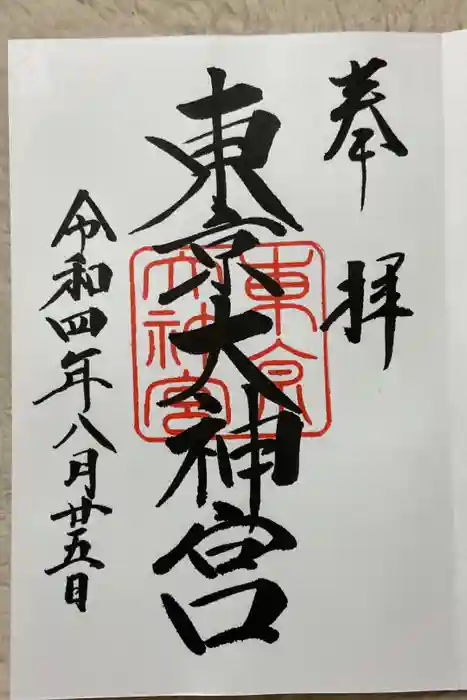 奉拝
東京大神宮
東京大神宮
令和四年八月廿五日